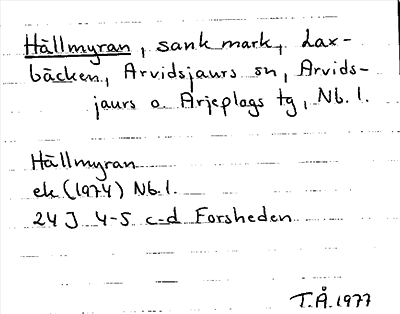 Hällmyran, sank mark, Lax-
bäcken, Arvidsjaurs sn, Arvids-
jaurs o. Arjeplogs tg, Nb. l.
Hällmyran
ek (1974) Nb. l.
24 J 4-5 c-d Forsheden
T.Å. 1977